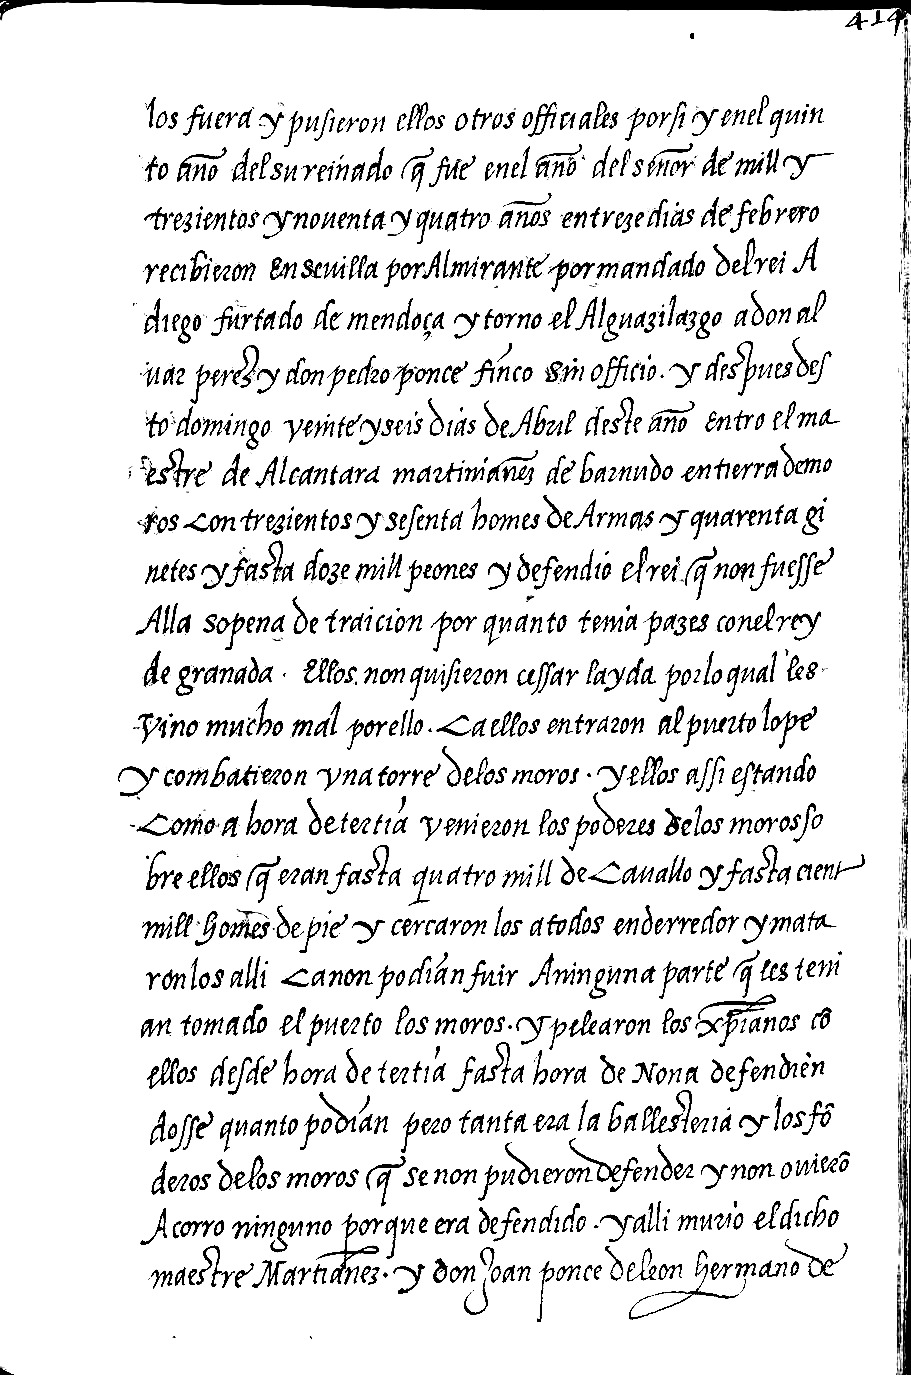 414
los fuera y pusieron ellos otros officiales porsi y enel quin
to año del su reinado q̃ fue enel año del señor de mill y
trezientos y nouenta y quatro años entreze dias de febrero
recibieron en seuilla por Almirante por mandado del rei A
diego furtado de mendoça y torno el Alguazilazgo a don al
uar perez y don pedro ponce finco sin officio. y despues des
to domingo veinte y seis dias de Abril deste año entro el ma
estre de Alcantara martinianez de barnudo en tierra de mo
ros con trezientos y sesenta homes de Armas y quarenta gi
netes y fasta doze mill peones y defendio el rei q̃ non fuesse
Alla sopena de traicion por quanto tenia pazes conel rey
de granada. Ellos non quisieron cessar la yda por lo qual les
vino mucho mal por ello. Ca ellos entraron al puerto lope
y combatieron vna torre delos moros. y ellos assi estando
como a hora de tertia venieron los poderes delos moros so
bre ellos q̃ eran fasta quatro mill de Cauallo y fasta cient
mill homes de pie y cercaron los atodos enderredor y mata
ron los alli ca non podian fuir Aninguna parte q̃ les teni
an tomado el puerto los moros. y pelearon los xp̃ianos cõ
ellos desde hora de tertia fasta hora de Nona defendien
dosse quanto podian pero tanta era la ballesteria y los fõ
deros delos moros q̃ se non pudieron defender y non ouierõ
Acorro ninguno porque era defendido. y alli murio el dicho
maestre Martiañez. y don Joan ponce de leon hermano de